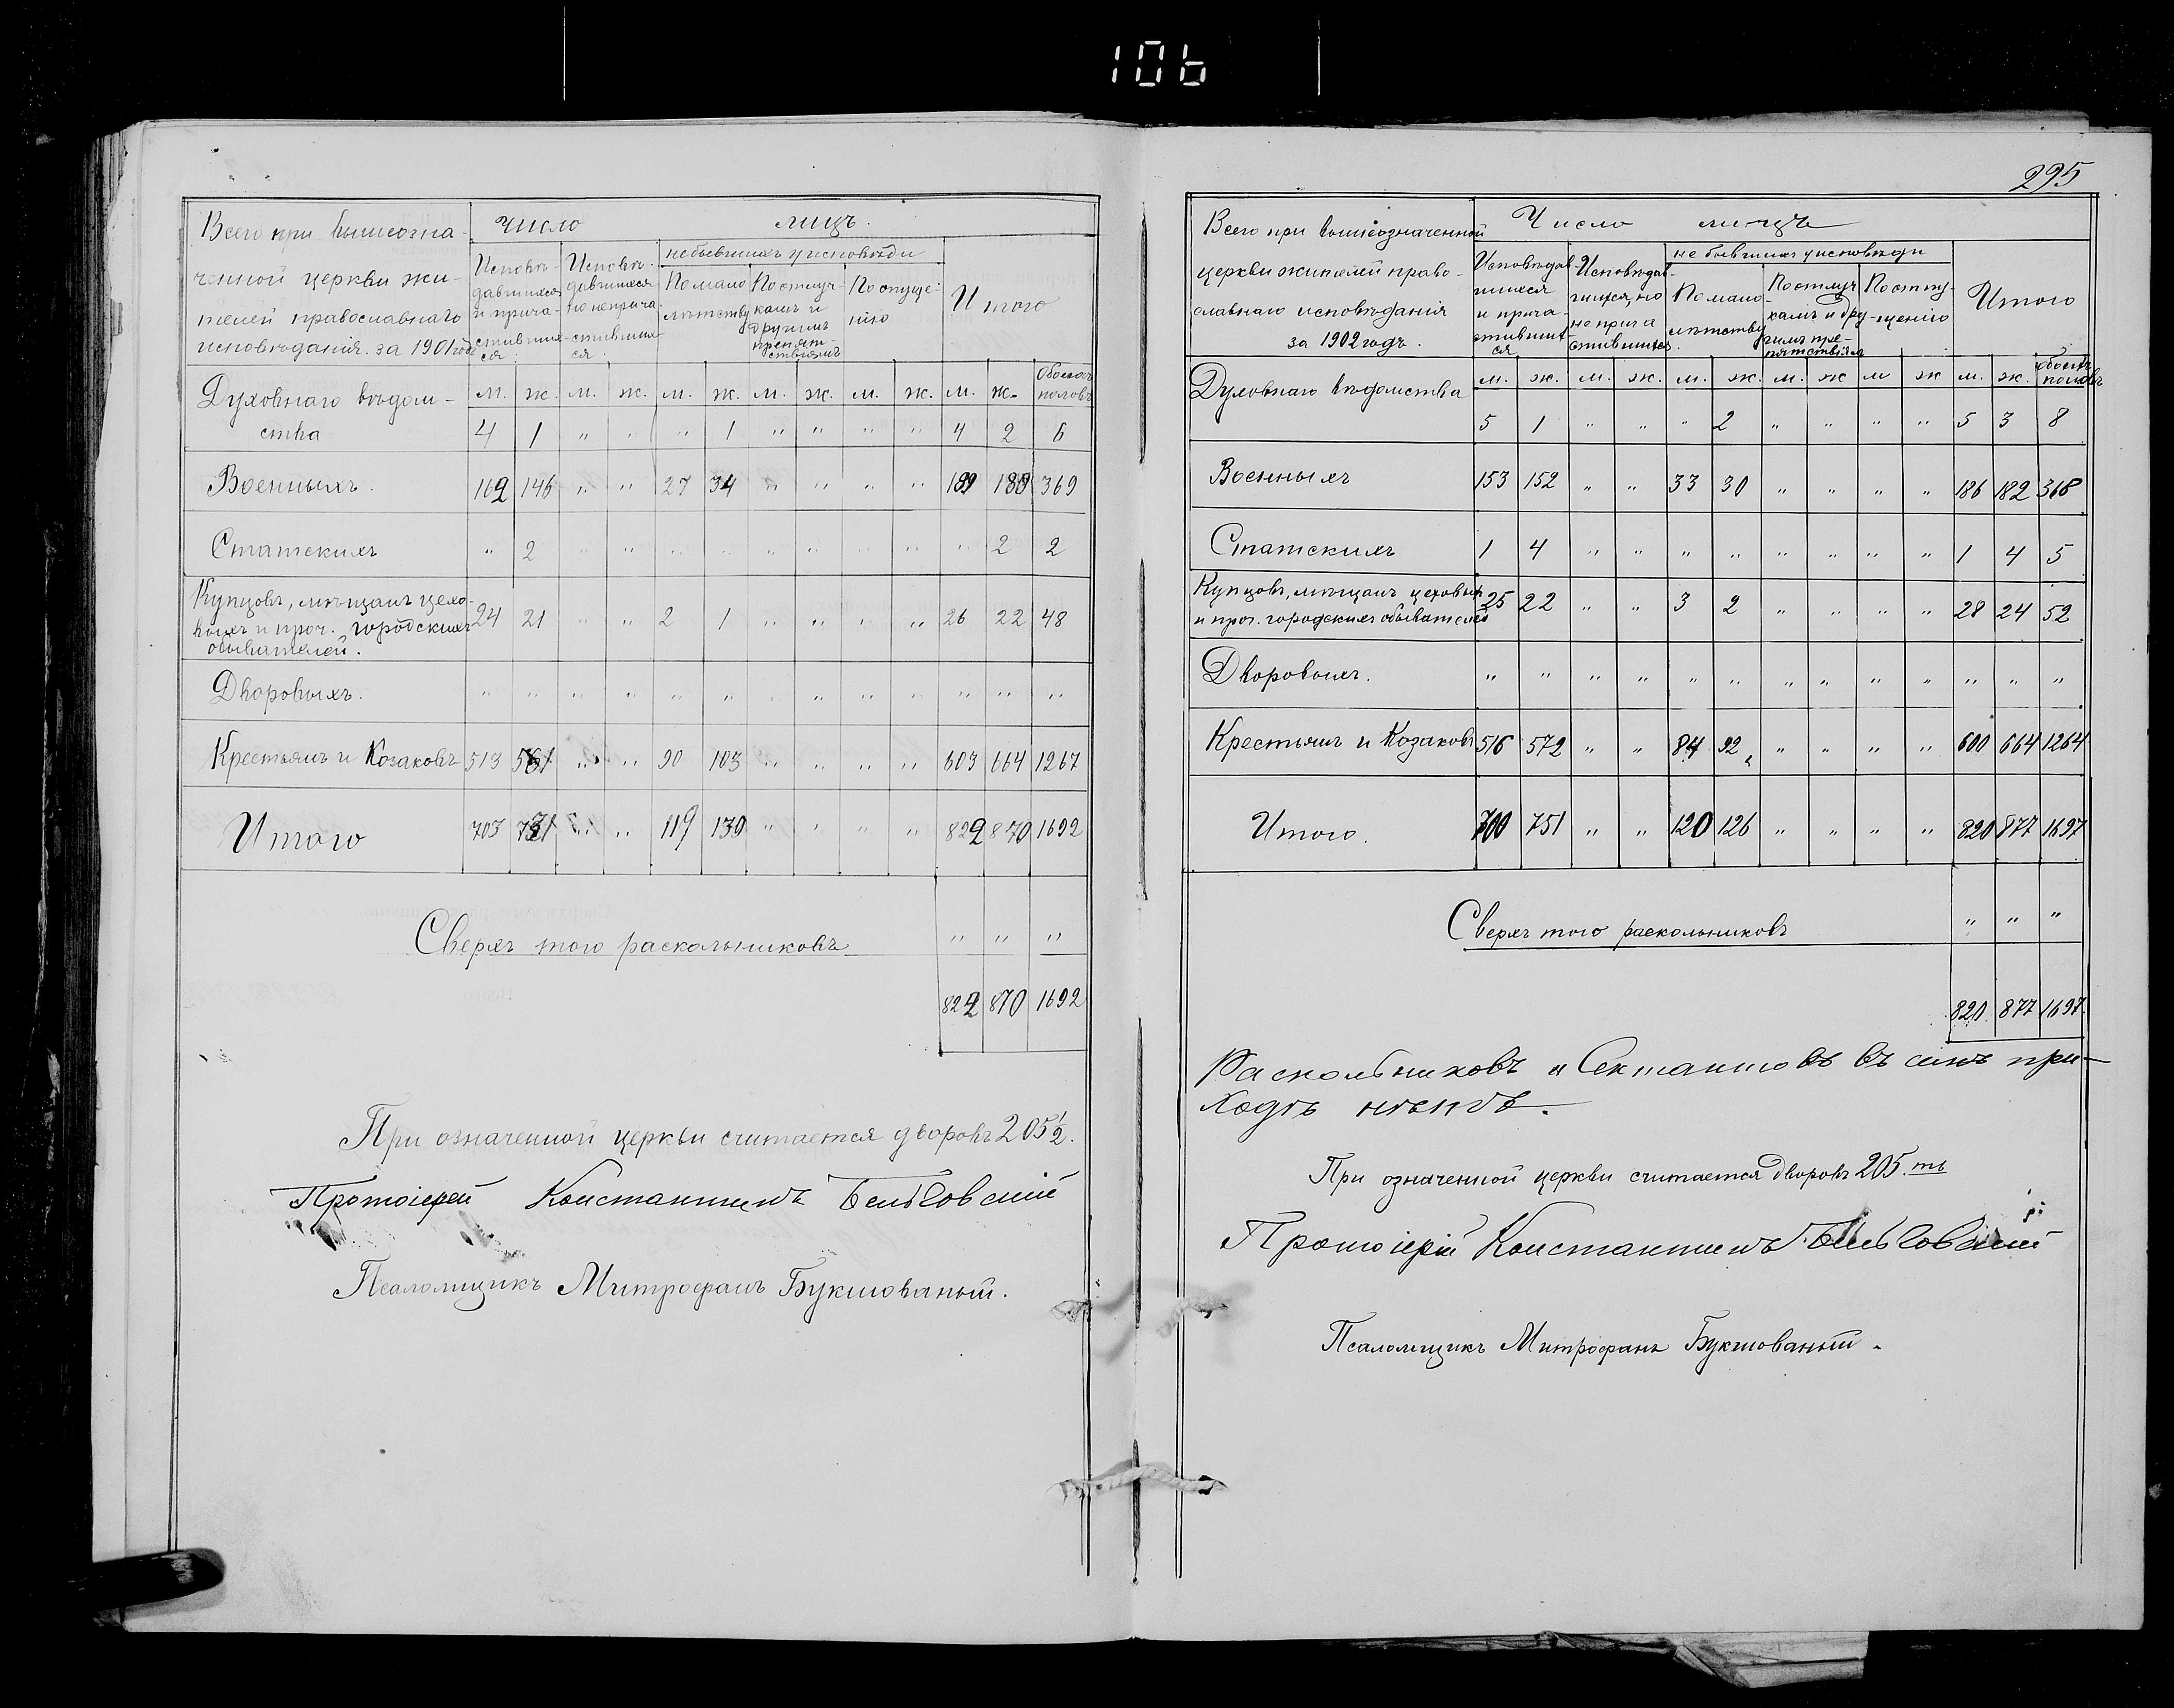 106
Всего при вышеозна-
ченной церкви жи-
телей православнаго
исповѣданія за 1901 годъ
Число лицъ.
Исповѣ-
давшихся
и прича-
стивших-
ся.
Исповѣ-
давшихся
но неприча-
стивших-
ся.
небывшихъ у исповѣди
По мало
лѣтству
По отлуч-
камъ и
другимъ
препят-
ствіямъ
По опуще-
нію
Итого
м. ж. м. ж. м. ж. м. ж. м. ж. м. ж. Обоихъ половъ
Духовнаго вѣдом-
ства 4 1 " " " 1 " " " " 4 2 6
Военныхъ. 162 146 " " 27 34 " " " " 189 180 369
Статскихъ " 2 " " " " " " " " " 2 2
Купцовъ, мѣщанъ цехо-
выхъ и проч. городскихъ 24 21 " " 2 1 " " " " 26 22 48
обывателей.
Дворовыхъ. " " " " " " " " " " " " "
Крестьянъ и Козаковъ 513 561 " " 90 103 " " " " 603 664 1267
Итого 703 731 " " 119 139 " " " " 822 870 1692
Сверхъ того раскольниковъ " " "
822 870 1692
При означенной церкви считается дворовъ 205 1/2.
Протоіерей Константинъ
Псаломщикъ Митрофанъ Букшованый.
295
Всего при вышеозначенной
церкви жителей право-
славнаго исповѣданія
за 1902 годъ.
Число лицъ
Исповѣдав
шихся
и прича-
стивших
ся
Исповѣдав-
шихся, но
не прича
стившихся.
не бывшихъ у исповѣди
По мало-
лѣтству
По отлуч
камъ и дру-
гимъ пре-
пятствіямъ
По опу-
щенію
Итого
м. ж. м. ж. м. ж. м. ж м ж м. ж. обоихъ половъ
Духовнаго вѣдомства 5 1 " " " 2 " " " " 5 3 8
Военныхъ 153 152 " " 33 30 " " " " 186 182 368
Статскихъ 1 4 " " " " " " " " 1 4 5
Купцовъ, мѣщанъ цеховыхъ 25 22 " " 3 2 " " " " 28 24 52
и проч. городскихъ обывателей
Дворовыхъ. " " " " " " " " " " " " "
Крестьянъ и Козаковъ 516 572 " " 84 92 " " " " 600 664 1264
Итого. 700 751 " " 120 126 " " " " 820 877 1697
Сверхъ того раскольниковъ " " "
820 877 1697.
Раскольниковъ и Сектантовъ въ семъ при-
ходѣ нѣтъ.
При означенной церкви считается дворовъ 205.ть
Протоіерей Константинъ
Псаломщикъ Митрофанъ Букшованый.